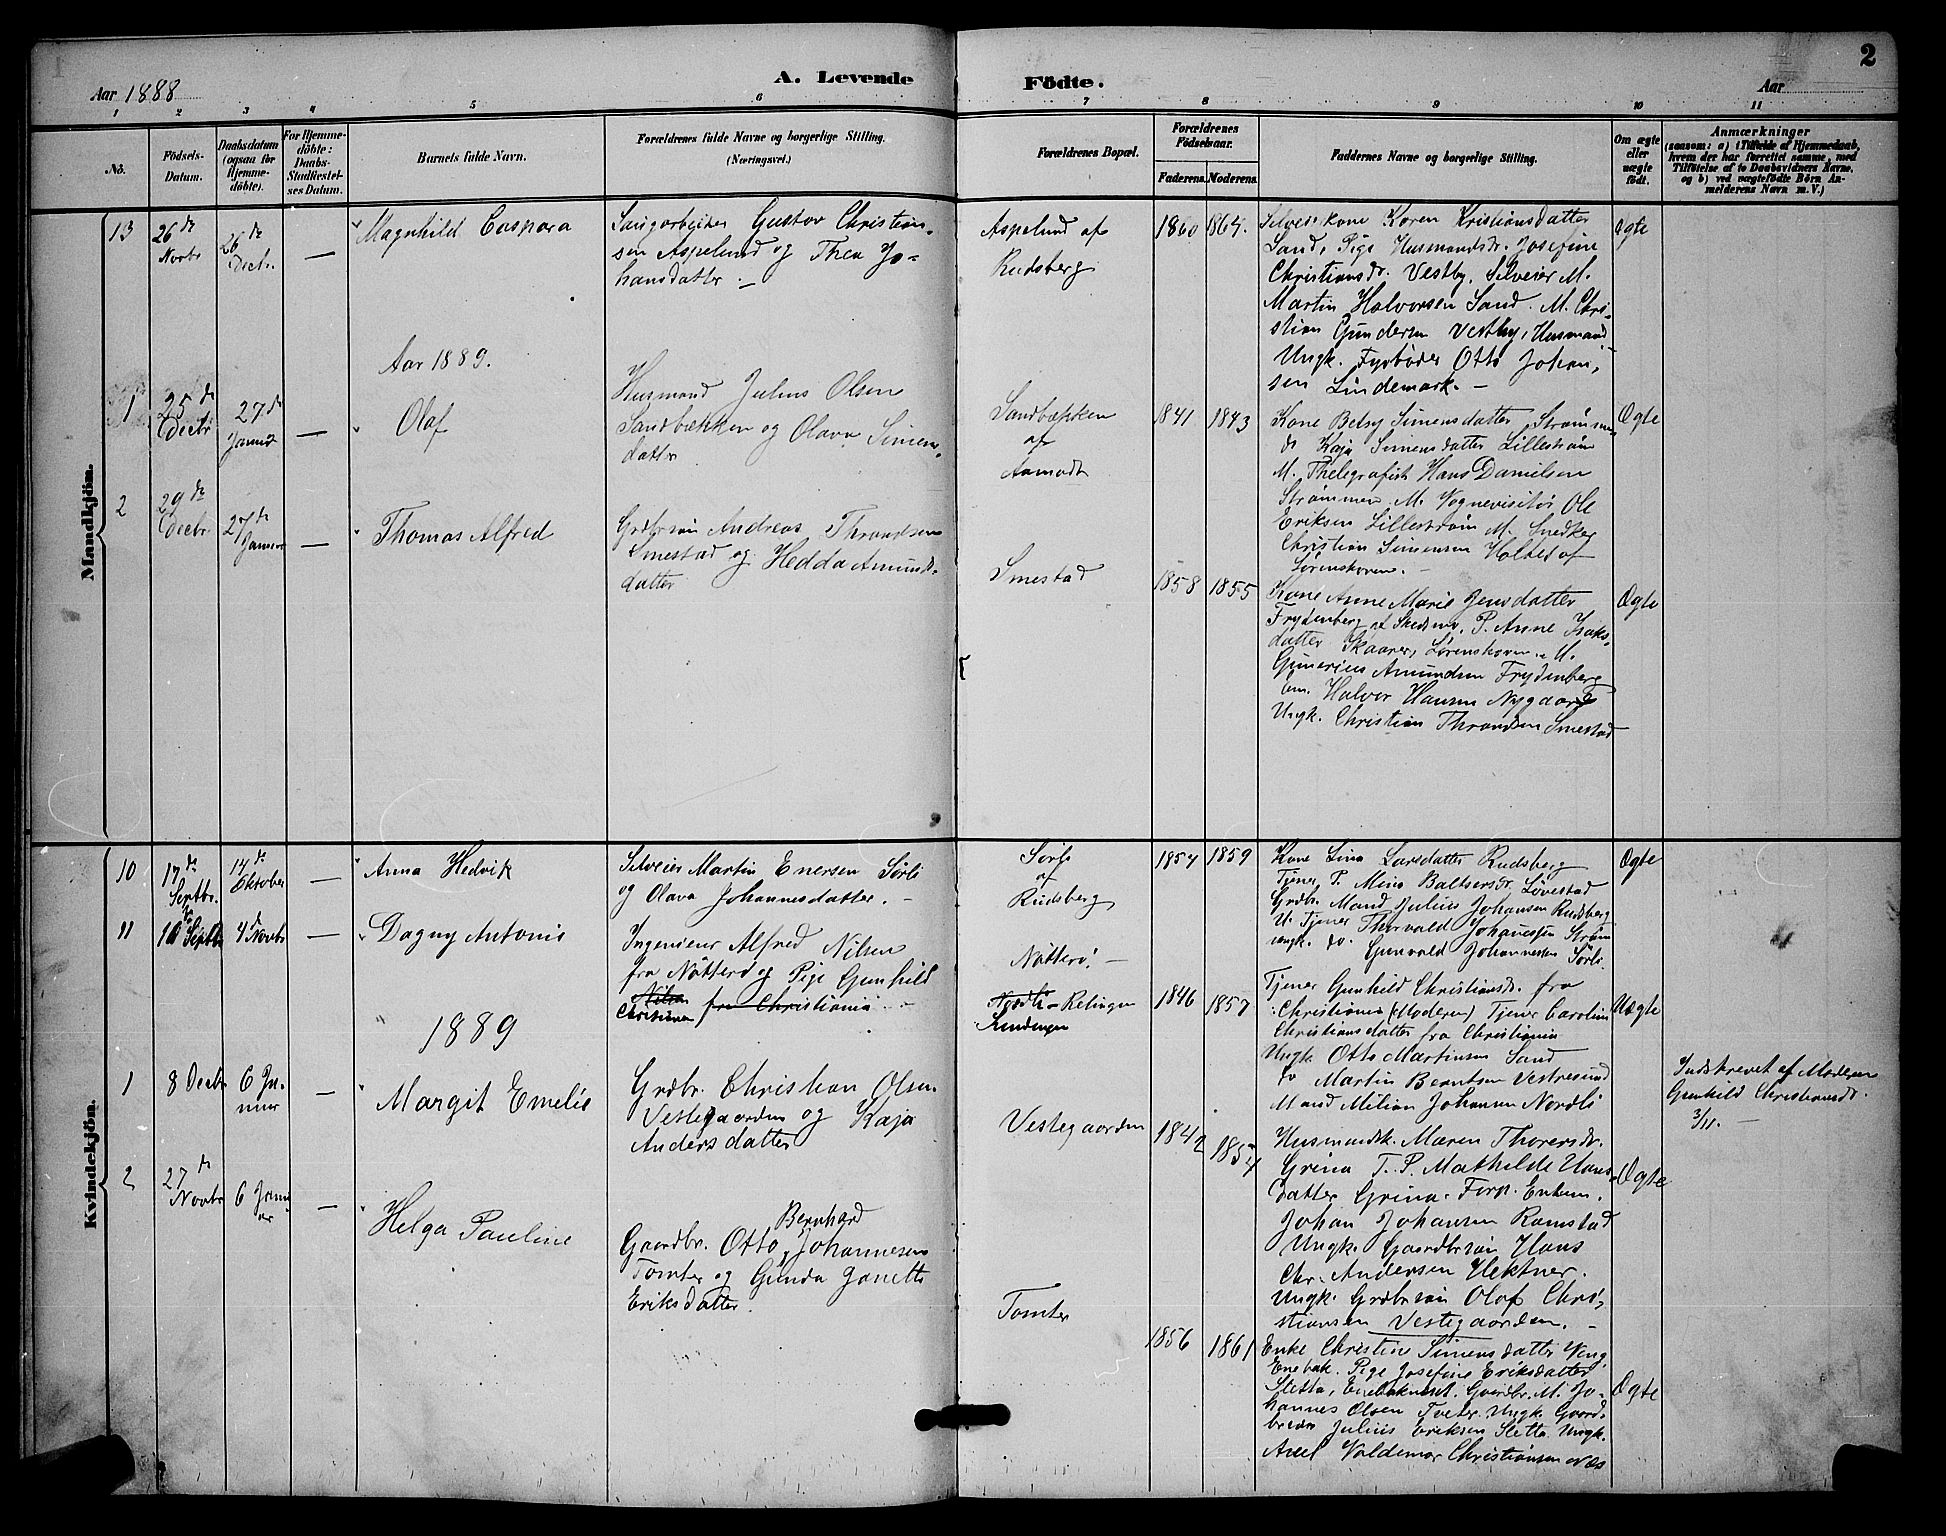 1
2
A. Levende
Födte.
Aar 1888
Aar
1
2
3
4
5
6
7
8
9
10
11
No.
Födsels-
Datum.
Daabsdatum
(ogsaa for
Hjemme-
döbte).
For Hjemme-
döbte:
Daabs-
Stadfæstel-
ses Datum.
Barnets fulde Navn.
Forældrenes fulde Navne og borgerlige Stilling.
(Næringsvei.)
Forældrenes Bopæl.
Forældrenes
Födselsaar.
Faderens.
Moderens.
Faddernes Navne og borgerlige Stilling.
Om ægte
eller
uægte
født.
Anmærkninger
(saasom: a) i Tilfælde af Hjemmedaab,
hvem der har forrettet samme, med
Tilføielse af to Daabsvidners Navne,
og b) ved uægtefödte Börn An-
melderens Navn m. V.)
Mandkjön.
13
26 de
Novbr
26 de
Decbr.
—
Magnhild Caspara
Saugarbeider Gustav Christian-
sen Aspelund og Thea Jo-
hansdatter —
Aspelund af
Rudsberg
1860
1864.
Selveierkone Karen Kristiansdatter
Sand, Pige Husmandsdr. Josefine
Christiansdr. Vestby, Selveier M.
Martin Halvorsen Sand. M. Chri-
stian Gundersen Vestby, Husmand
Ungk. Fyrböder Otto Johan-
sen Lindemark. —
Ægte
Aar 1889.
1
25 de
Decbr
27 de
Januar
—
Olaf
Husmand Julius Olsen
Sandbækken og Olava Simens-
datter
Sandbækken
af
Aamodt
1841
1843
Kone Betsy Simensdatter Strømmen
do Kaja Simensdatter Lillestrøm
M. Thelegrafist Hans Danielsen
Strømmen M. Vognevisitør Ole
Eriksen Lillestrøm M. Snedker
Christian Simensen Holted af
Lørenskoven. —
Ægte
2
29 de
Decbr
27 de
Januar
—
Thomas Alfred
Grdbrsøn Andreas Thrandsen
Smestad og Hedda Amunds-
datter
Smestad
1858
1855
Kone Anne Marie Jensdatter
Frydenberg af Skedsmo, P. Anne Isaks-
datter Skaarer, Lørenskoven. M.
Gunerius Amundsen Frydenberg
Em. Halvor Hansen Nygaard
Ungk. Christian Thrandsen Smestad
Ægte
Kvindekjön.
10
17 de
Septbr.
14 de
Oktober
—
Anna Hedvik
Selveier Martin Enersen Sørli
og Olava Johannesdatter. —
Sørli
af
Rudsberg
1854
1859
Kone Lina Larsdatter Rudsberg
Tjener P. Mina Baltsersdr. Løvestad
Grdbr. Mand Julius Johansen Rudsberg
U. Tjener Thorvald Johanessen Strøm
ungk. do. Gunvald Johannessen Sørli.
Ægte
11
10 Septbr
4 de Novbr
—
Dagny Antonie
Ingeniör Alfred Nilsen
fra Nötterö og Pige Gunhild
Nilsen fra Christiania —
Christiansen
Nötterö. —
Nordli – Relingen
1846
1857
Tjener Gunhild Christiansdr. fra
Christiania (Moderen) Tjener Caroline
Christiansdatter fra Christiania
Ungk Otto Martinsen Sand
do Martin Berntsen Vestresund
Mand Milian Johansen Nordli
Uægte
Indskrevet af Moderen
Gunhild Christiansdr.
3/11. —
1889
1
8 Decbr
6 Ja-
nuar
—
Margit Emelie
Grdbr. Christian Olsen
Vestegaarden og Kaja
Andersdatter
Vestegaarden
1842
1854
Husmandsk. Maren Thorersdr.
Grina T. P. Mathilde Hans-
datter Grina. Forp. Enkem.
Johan Johansen Ramstad
Ungk. Gaardbrsøn Hans
Chr. Andersen Hektner.
Ungk. Grdbrsøn Olaf Chri-
stiansen Vestegaarden. —
Ægte
2
27 de
Novbr
6 Janu-
ar
—
Helga Pauline
Bernhard
Gaardbr. Otto Johannesen
Tomter og Gunda Janette
Eriksdatter.
Tomter
1856
1861
Enke Christine Simensdatter Vang
Enebak. Pige Josefine Eriksdatter
Sletta, Enebaknæset. Gaardbr. M. Jo-
hannes Olsen Tveter. Ungk Gaard-
brsøn Julius Eriksen Sletta Ungk.
Axel Valdemar Christiansen Næs
Ægte